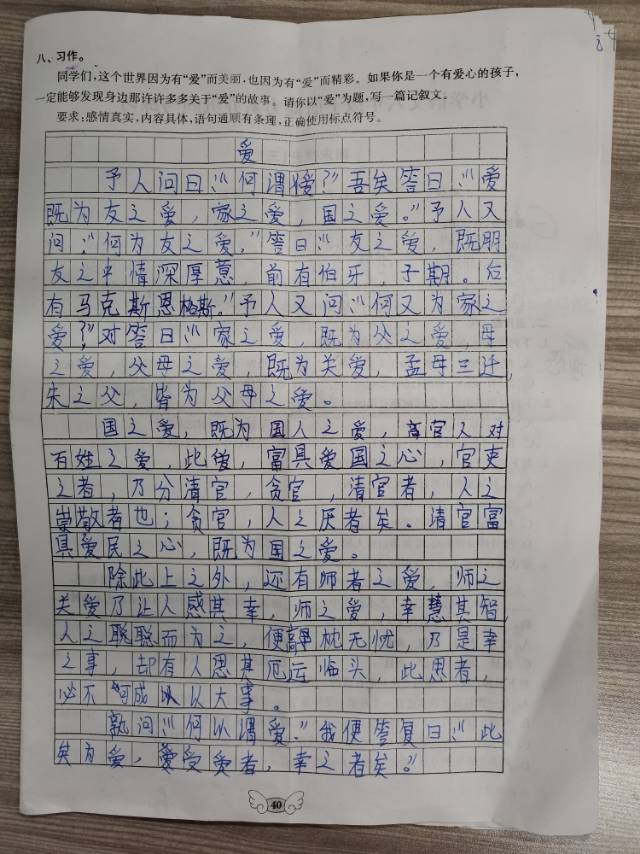 八、习作。
同学们,这个世界因为有“爱”而美丽,也因为有“爱”而精彩。如果你是一个有爱心的孩子,
一定能够发现身边那许许多多关于“爱”的故事。请你以“爱”为题,写一篇记叙文。
要求:感情真实,内容具体,语句通顺有条理,正确使用标点符号。
爱
予人问曰:“何谓爱?”吾矣答曰:“爱
既为友之爱,家之爱,国之爱。”予人又
问:“何为友之爱。”答曰:“友之爱,既朋
友之中情深厚意,前有伯牙,子期。后
有马克斯恩格斯。”予人又问:“何又为家之
爱?”对答曰:“家之爱,既为父之爱,母
之爱,父母之爱,既为关爱,孟母三迁,
朱之父,皆为父母之爱。
国之爱,既为国人之爱,高官人对
百姓之爱,此爱,富具爱国之心,官吏
之者,乃分清官,贪官,清官者,人之
崇敬者也;贪官,人之厌者矣。清官富
具爱民之心,既为国之爱。
除此上之外,还有师者之爱,师之
关爱乃让人感其幸,师之爱,幸慧其智,
人之聪聪而为之,便高枕无忧,乃是幸
之事,却有人思其厄运临头,此思者,
必不可成以大事。
孰问:“何以谓爱。”我便答复曰:“此
矣为爱,爱受爱者,幸之者矣。”
40